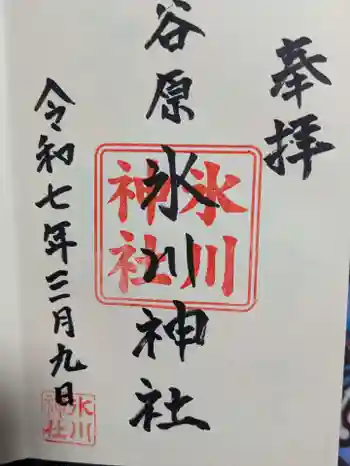 奉拝
谷原氷川神社
氷川
神社
令和七年三月九日
氷川
神社